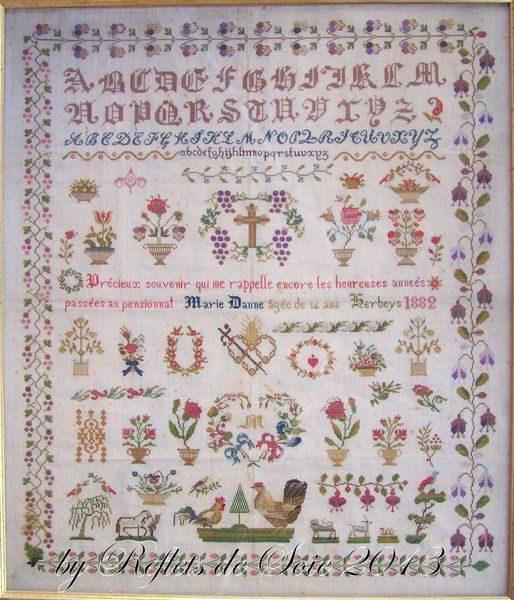 ABCDEFGHIJKLM
NOPQRSTUVXYZ
ABCDEFGHIJKLMNOPQRSTUVXYZ
abcdefghijklmnopqrstuvxyz
Précieux souvenir qui me rappelle encore les heureuses anneés
passées au penzionnat Marie Danne âgée de 14 ans Herbeys 1882
M
by Reflets de Soie 2013